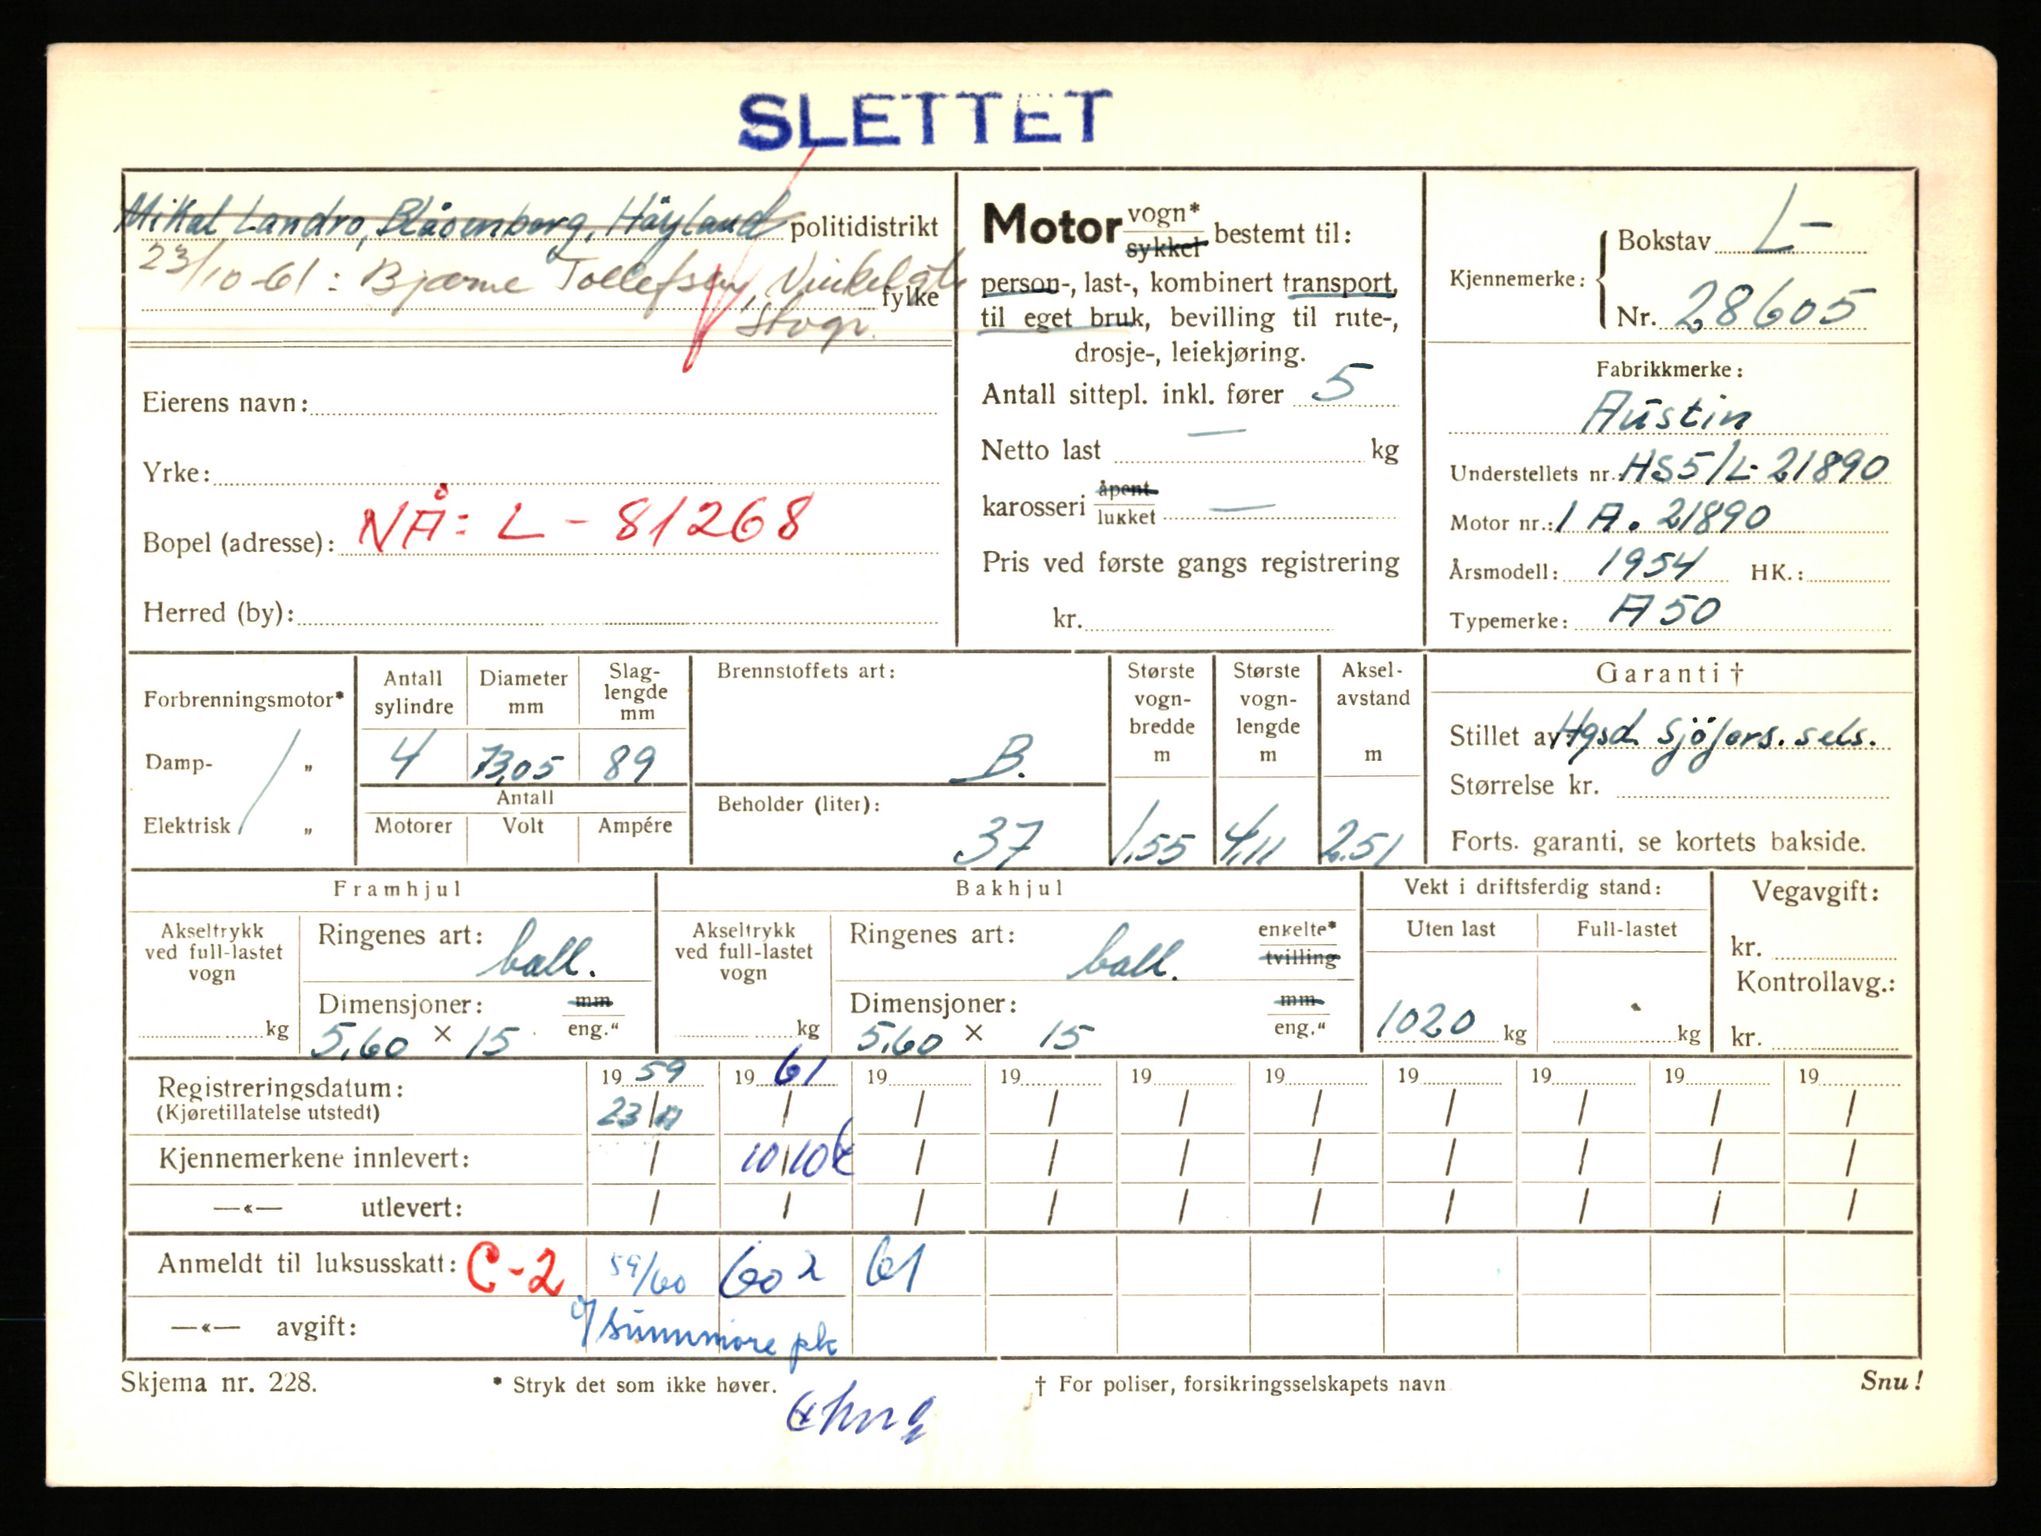 SLETTET
Mikal Landro, Blåsenborg, Høyland politidistrikt
23/10-61: Bjarne Tollefsen, Vinkelgt. fylke
Stvgr.
Eierens navn:
Yrke:
Bopel (adresse): NÅ: L - 81268
Herred (by):
Motor vogn* sykkel bestemt til:
person-, last-, kombinert transport,
til eget bruk, bevilling til rute-,
drosje-, leiekjøring.
Antall sittepl. inkl. fører 5
Netto last — kg
karosseri åpent lukket —
Pris ved første gangs registrering
kr.
Kjennemerke: Bokstav L-
Nr. 28605
Fabrikkmerke:
Austin
Understellets nr. HS5/L-21890
Motor nr.: 1 A. 21890
Årsmodell: 1954 HK.:
Typemerke: A50
Forbrenningsmotor*
Damp- „
Elektrisk „
Antall sylindre Diameter mm Slaglengde mm
4 73,05 89
Antall
Motorer Volt Ampére
Brennstoffets art:
B.
Beholder (liter):
37
Største vogn-bredde m Største vogn-lengde m Aksel-avstand m
1.55 4.11 2.51
Garanti †
Stillet av Hgsd. Sjöfors. sels.
Størrelse kr.
Forts. garanti, se kortets bakside.
Framhjul
Akseltrykk ved full-lastet vogn kg
Ringenes art: ball.
Dimensjoner: mm eng."
5,60 × 15
Bakhjul
Akseltrykk ved full-lastet vogn kg
Ringenes art: ball. enkelte* tvilling
Dimensjoner: mm eng."
5,60 × 15
Vekt i driftsferdig stand:
Uten last Full-lastet
1020 kg kg
Vegavgift:
kr.
Kontrollavg.:
kr.
Registreringsdatum: 19 59 19 61 19 19 19 19 19 19 19 19
(Kjøretillatelse utstedt) 23/11 / / / / / / / / /
Kjennemerkene innlevert: / 10/10 / / / / / / / /
—«— utlevert: / / / / / / / / / /
Anmeldt til luksusskatt: C-2 59/60 60 2 61
—«— avgift: Sunnmøre pk
Skjema nr. 228. * Stryk det som ikke høver. † For poliser, forsikringsselskapets navn Snu!